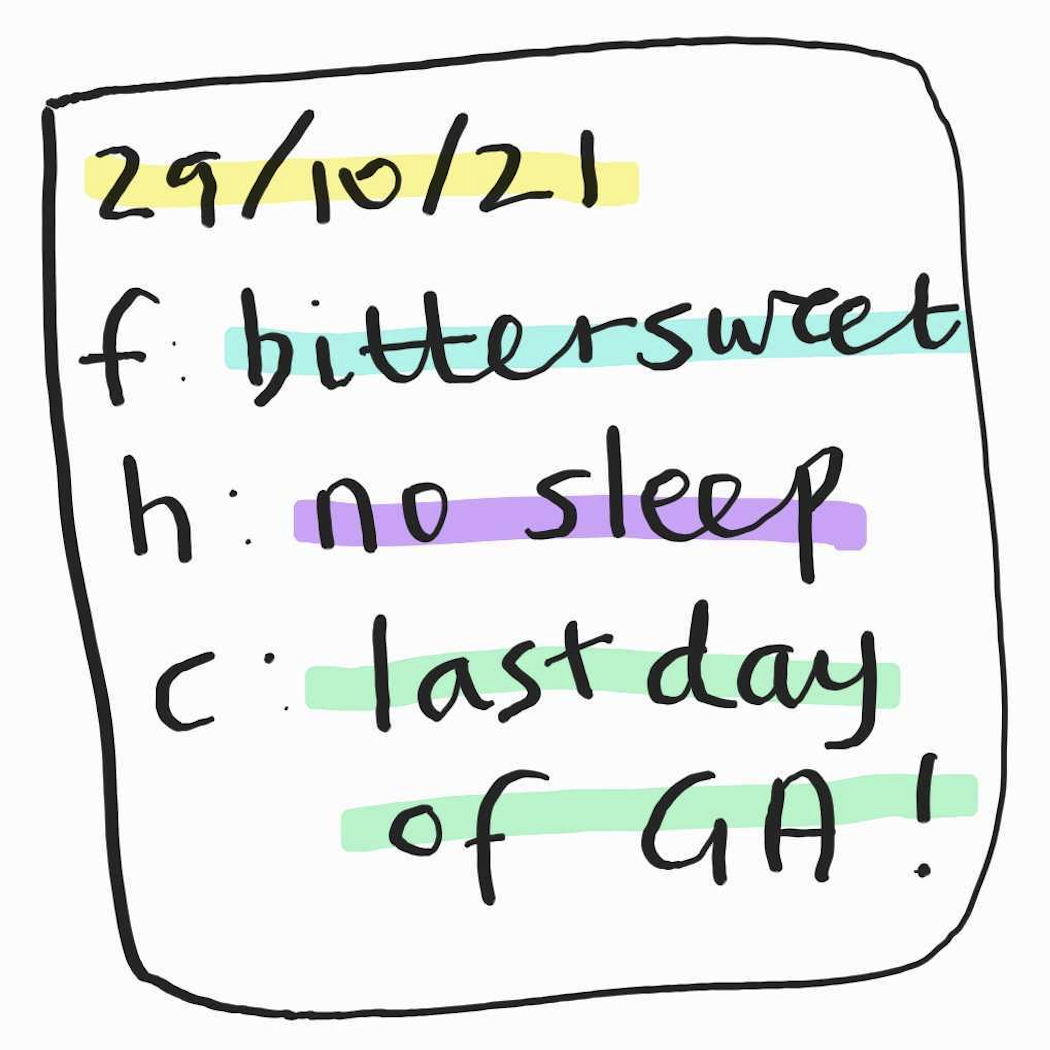 29/10/21
f: bittersweet
h: no sleep
c: last day
of GA!